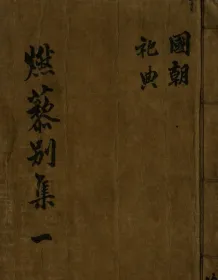 國朝
祀典
燃藜別集 一